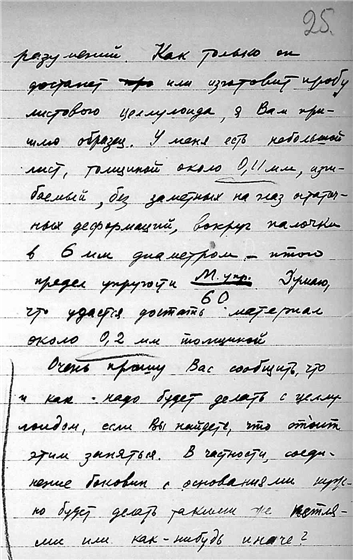 25.
разумений. Как только он
достанет или изготовит пробу
листового целлулоида, я Вам при-
шлю образец. У меня есть небольшой
лист, толщиной около 0,11 мм, изги-
баемый, без заметных на глаз остаточ-
ных деформаций, вокруг палочки
в 6 мм диаметром – итого
предел упругости М.упр.
60
Думаю,
что удастся достать материал
около 0,2 мм толщиной
Очень прошу Вас сообщить, что
и как – надо будет делать с целлу-
лоидом, если Вы найдете, что стоит
этим заняться. В частности, соеди-
нение боковин с основаниями нуж-
но будет делать такими же петля-
ми или как-нибудь иначе?